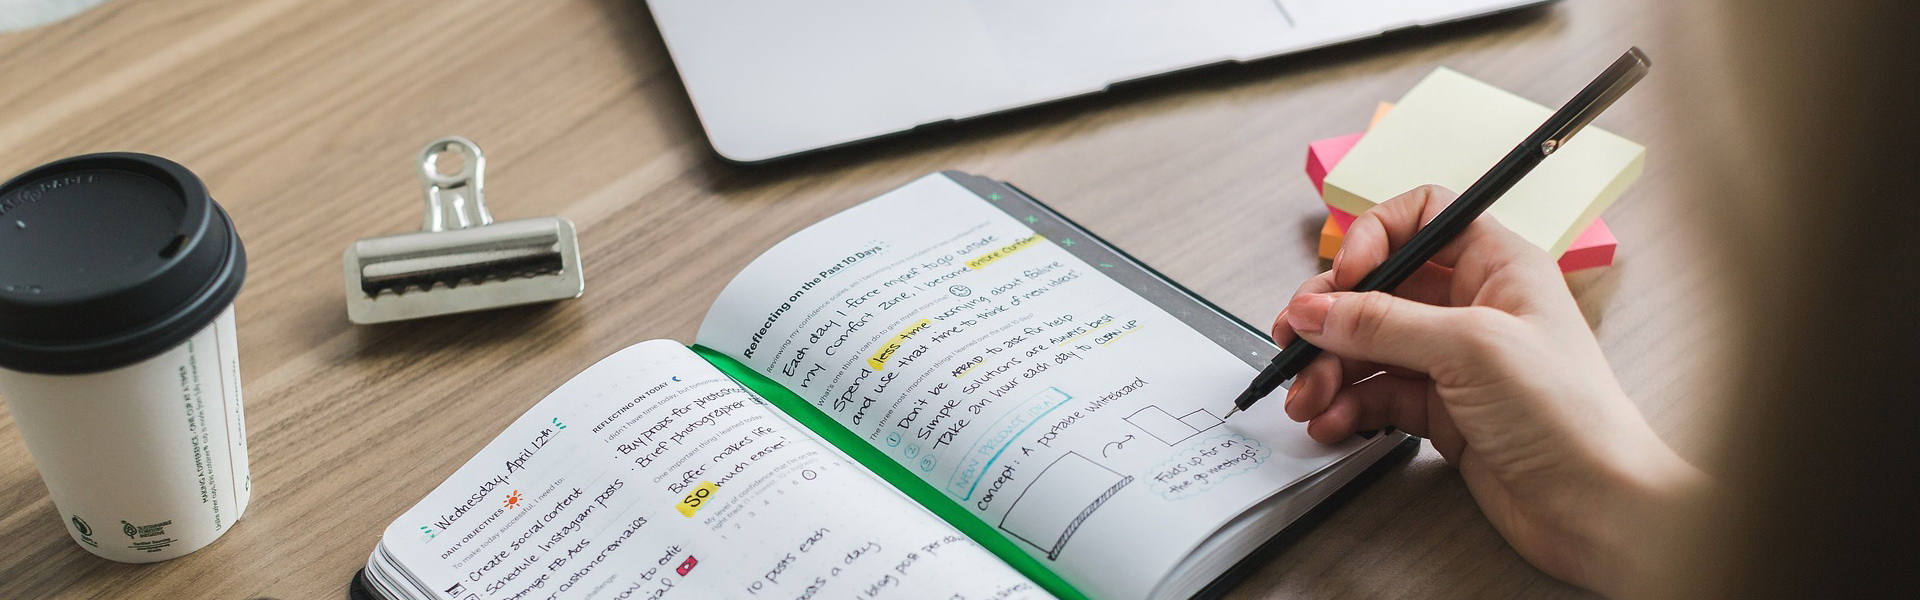 Wednesday, April 12th
DAILY OBJECTIVES
To make today successful, I need to:
Create social content
Schedule Instagram posts
FB Ads
customer emails
how to edit
REFLECTING ON TODAY
I didn't have time today, but tomorrow
Buy props for photoshoot
Brief photographer
One important thing I learned today
Buffer makes life
SO much easier!
My level of confidence that I'm on the
right track
10 posts each
a day
blog post per day
Reflecting on the Past 10 Days
Each day I force myself to go outside
my comfort zone, I become more confident
What's one thing I can do to give myself more time?
Spend less time worrying about failure
and use that time to think of new ideas!
The three most important things I learned over the past 10 days?
1 Don't be AFRAID to ask for help
2 Simple solutions are ALWAYS best
3 Take an hour each day to CLEAN UP
NEW PRODUCT IDEA!
concept: A portable whiteboard
Folds up for on
the go meetings!